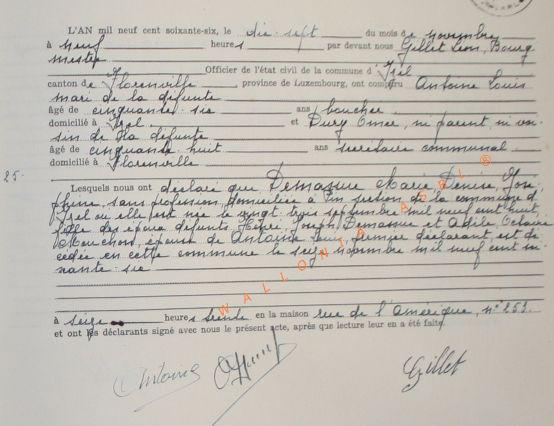 L'AN mil neuf cent soixante-six, le dix-sept du mois de novembre
à neuf heures par devant nous Gillet Léon, Bourg
mestre Officier de l'état civil de la commune d'Izel
canton de Florenville, province de Luxembourg, ont comparu Antoine Louis
mari de la défunte
âgé de cinquante six ans boucher
domicilié à Izel et Dury Omer, ni parent ni voi-
sin de la défunte
âgé de cinquante huit ans secrétaire communal
domicilié à Florenville
25.- Lesquels nous ont déclaré que Demasure Marie, Denise, José
phine, sans profession, domiciliée à Pin section de la commune d'
Izel où elle est née le vingt trois septembre mil neuf cent huit,
fille des époux défunts Henri, Joseph Demasure et Adèle
Mouchon, épouse de Antoine Louis, premier déclarant est dé
cédée en cette commune le seize novembre mil neuf cent soi
xante six
à seize heures trente en la maison rue de l'Amérique, n° 253.
et ont les déclarants signé avec nous le présent acte, après que lecture leur en a été faite.
Antoine Gillet
WALLONIA ASBL ®